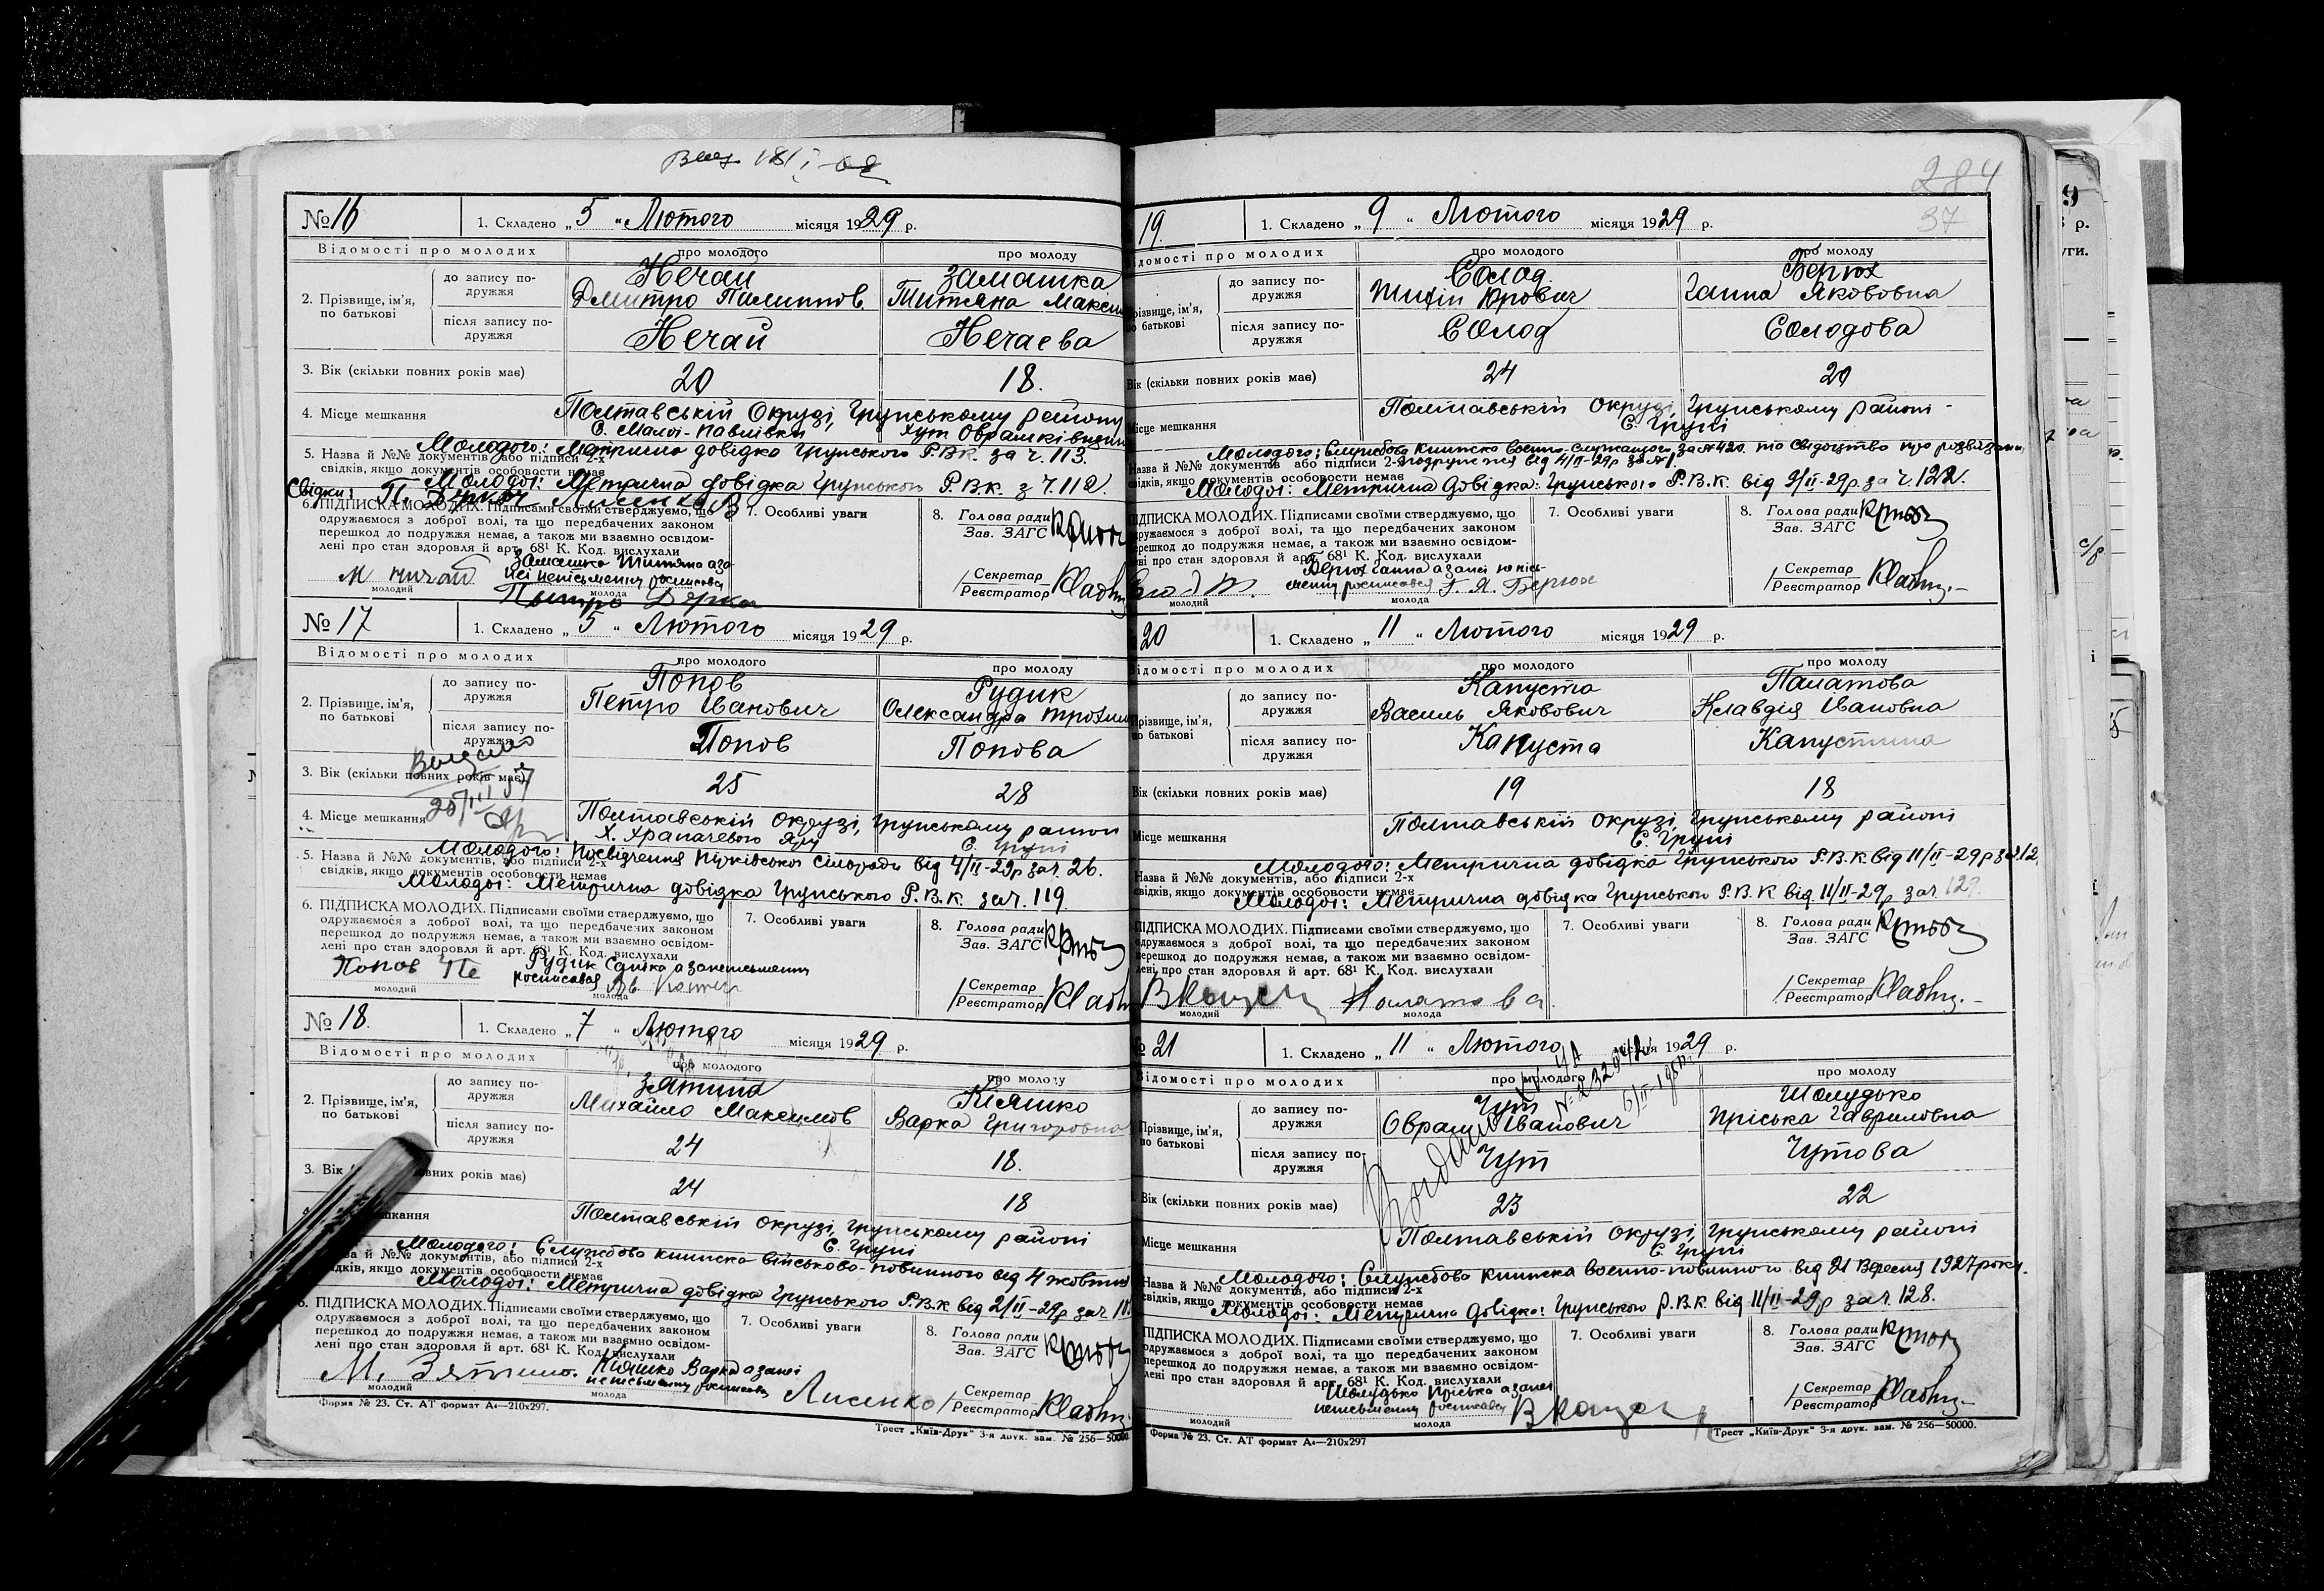 284
37
№ 16
1. Складено „5“ Лютого місяця 1929 р.
Відомості про молодих
про молодого
про молоду
2. Прізвище, ім'я, по батькові
до запису подружжя
Нечай
Замашка
Дмитро Пилиппов.
Титяна Максим
після запису подружжя
Нечай
Нечаєва
3. Вік (скільки повних років має)
20
18.
4. Місце мешкання
Полтавській Окрузі, Грунському району
С. Малої-Павлівки
хут Оврамківщини
5. Назва й №№ документів, або підписи 2-х свідків, якщо документів особовости немає
Молодого: Метрична довідка Грунського Р.В.К. за ч. 113.
Молодої: Метрична довідка Грунського Р.В.К. з ч. 112.
Свідки:
6. ПІДПИСКА МОЛОДИХ. Підписами своїми стверджуємо, що
одружаємося з доброї волі, та що передбачених законом
перешкод до подружжя немає, а також ми взаємно освідом-
лені про стан здоровля й арт. 68¹ К. Код. вислухали
7. Особливі уваги
8. Голова ради
Зав. ЗАГС
Замашка Титяна а за
неї неписьменну росписавсь
молодий
молода
Секретар
Реєстратор
№ 17
1. Складено „5“ Лютого місяця 1929 р.
Відомості про молодих
про молодого
про молоду
2. Прізвище, ім'я, по батькові
до запису подружжя
Попов
Рудик
Петро Іванович
Олександра Трохим
після запису подружжя
Попов
Попова
3. Вік (скільки повних років має)
25
28
4. Місце мешкання
Полтавській Окрузі, Грунському районі
Х. Храпачевого Яру
С. Груні
5. Назва й №№ документів, або підписи 2-х свідків, якщо документів особовости немає
Молодого: Посвідчення Пучківської сілоради від 4/II-29р за ч. 26.
Молодої: Метрична довідка Грунського Р.В.К. за ч. 119
6. ПІДПИСКА МОЛОДИХ. Підписами своїми стверджуємо, що
одружаємося з доброї волі, та що передбачених законом
перешкод до подружжя немає, а також ми взаємно освідом-
лені про стан здоровля й арт. 68¹ К. Код. вислухали
7. Особливі уваги
8. Голова ради
Зав. ЗАГС
Попов Пе
молодий
молода
Секретар
Реєстратор
№ 18.
1. Складено „7“ Лютого місяця 1929 р.
Відомості про молодих
про молодого
про молоду
2. Прізвище, ім'я, по батькові
до запису подружжя
Зятина
Кіяшко
Михайло Максимов
Варка Григоровна
після запису подружжя
24
18.
3. Вік
повних років має)
24
18
мешкання
Полтавській окрузі, Грунському районі
С. Груні
й №№ документів, або підписи 2-х свідків, якщо документів особовости немає
Молодого: Службова книжка військово-повинного від 4 жовтня
Молодої: Метрична довідка Грунського Р.В.К від 2/II-29р за ч 11
ПІДПИСКА МОЛОДИХ. Підписами своїми стверджуємо, що
одружаємося з доброї волі, та що передбачених законом
перешкод до подружжя немає, а також ми взаємно освідом-
лені про стан здоровля й арт. 68¹ К. Код. вислухали
7. Особливі уваги
8. Голова ради
Зав. ЗАГС
Кіяшко Варка а за неї
неписьменну росписавсь
Лисенко
молодий
молода
Секретар
Реєстратор
Форма № 23. Ст. АТ формат А4—210х297.
Трест „Київ-Друк“ 3-я друк. зам. № 256—50000.
19.
1. Складено „9“ Лютого місяця 1929 р.
Відомості про молодих
про молодого
про молоду
Прізвище, ім'я, по батькові
до запису подружжя
Солод
Берюх
Ганна Якововна
після запису подружжя
Солод
Солодова
Вік (скільки повних років має)
24
20
Місце мешкання
Полтавській Окрузі, Грунському районі
С. Груні
Назва й №№ документів або підписи 2-х свідків, якщо документів особовости немає
Молодого: Службова книжка военно-служащого за №420. та свідоцтво про розвязання
подружжя від 4/II-29р за №1.
Молодої: Метрична Довідка: Грунського Р.В.К. від 9/II-29р. за ч. 122.
ПІДПИСКА МОЛОДИХ. Підписами своїми стверджуємо, що
одружаємося з доброї волі, та що передбачених законом
перешкод до подружжя немає, а також ми взаємно освідом-
лені про стан здоровля й арт. 68¹ К. Код. вислухали
7. Особливі уваги
8. Голова ради
Зав. ЗАГС
Берюх Ганна а за неї непись-
менну росписався Г. Я. Берюх
молодий
молода
Секретар
Реєстратор
20
1. Складено „11“ Лютого місяця 1929 р.
Відомості про молодих
про молодого
про молоду
Прізвище, ім'я, по батькові
до запису подружжя
Капуста
Палатова
Василь Якович
Клавдія Івановна
після запису подружжя
Капуста
Капустина
Вік (скільки повних років має)
19
18
Місце мешкання
Полтавській окрузі, Грунському районі
С. Груні
Назва й №№ документів, або підписи 2-х свідків, якщо документів особовости немає
Молодого: Метрична довідка Грунського Р.В.К від 11/II-29р за ч 12
Молодої: Метрична довідка Грунського Р.В.К від 11/II-29р за ч. 129.
ПІДПИСКА МОЛОДИХ. Підписами своїми стверджуємо, що
одружаємося з доброї волі, та що передбачених законом
перешкод до подружжя немає, а також ми взаємно освідом-
лені про стан здоровля й арт. 68¹ К. Код. вислухали
7. Особливі уваги
8. Голова ради
Зав. ЗАГС
Палатова
молодий
молода
Секретар
Реєстратор
№ 21
1. Складено „11“ Лютого місяця 1929 р.
Відомості про молодих
про молодого
про молоду
Прізвище, ім'я, по батькові
до запису подружжя
Чут
Шолудько
Оврам Іванович
Пріська Гавриловна
після запису подружжя
Чут
Чутова
Вік (скільки повних років має)
23
22
Місце мешкання
Полтавській Окрузі, Грунському районі
С. Груні
Назва й №№ документів, або підписи 2-х свідків, якщо документів особовости немає
Молодого: Службова книжка военно-повинного від 21 Вересня 1927 року.
Молодої: Метрична Довідка: Грунського Р.В.К. від 11/II-29р за ч. 128.
ПІДПИСКА МОЛОДИХ. Підписами своїми стверджуємо, що
одружаємося з доброї волі, та що передбачених законом
перешкод до подружжя немає, а також ми взаємно освідом-
лені про стан здоровля й арт. 68¹ К. Код. вислухали
7. Особливі уваги
8. Голова ради
Зав. ЗАГС
Шолудько Пріська а за неї
неписьменну росписавсь
молодий
молода
Секретар
Реєстратор
Форма № 23. Ст. АТ формат А4—210х297
Трест „Київ-Друк“ 3-я друк. зам. № 256—50000.